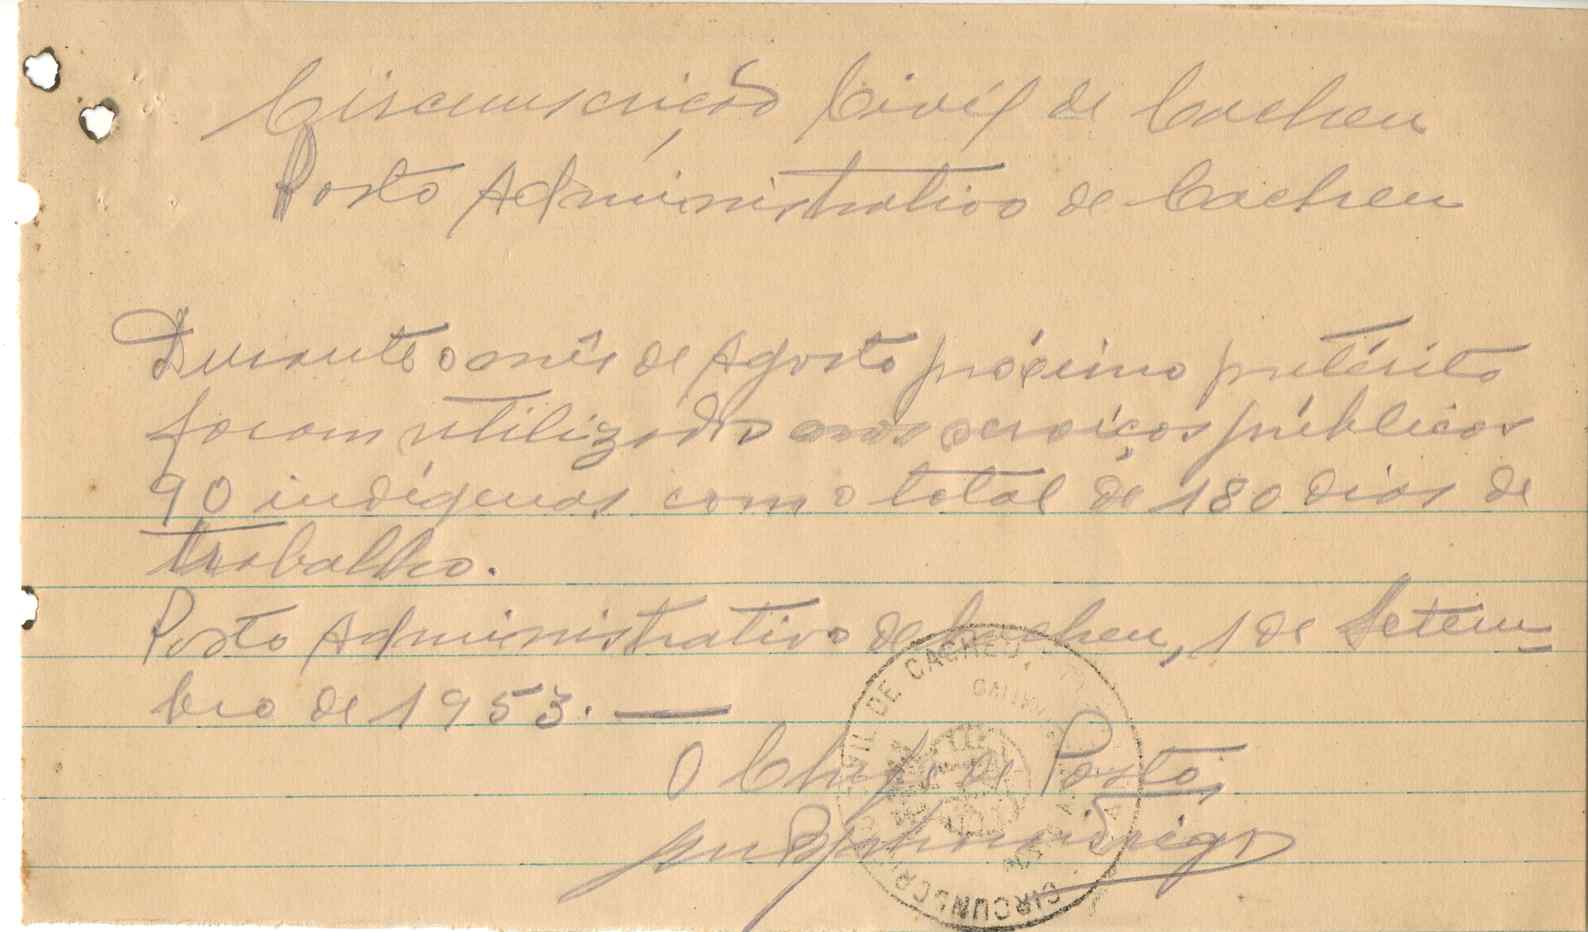 Circunscrição Civil de Cacheu
Posto Administrativo de Cacheu
Durante o mês de Agosto próximo pretérito
foram utilizados nos serviços públicos
90 indígenas com o total de 180 dias de
trabalho.
Posto Administrativo de Cacheu, 1 de Setem-
bro de 1953. —
O Chefe de Posto,
CIRCUNSCRI VIL DE CACHEU